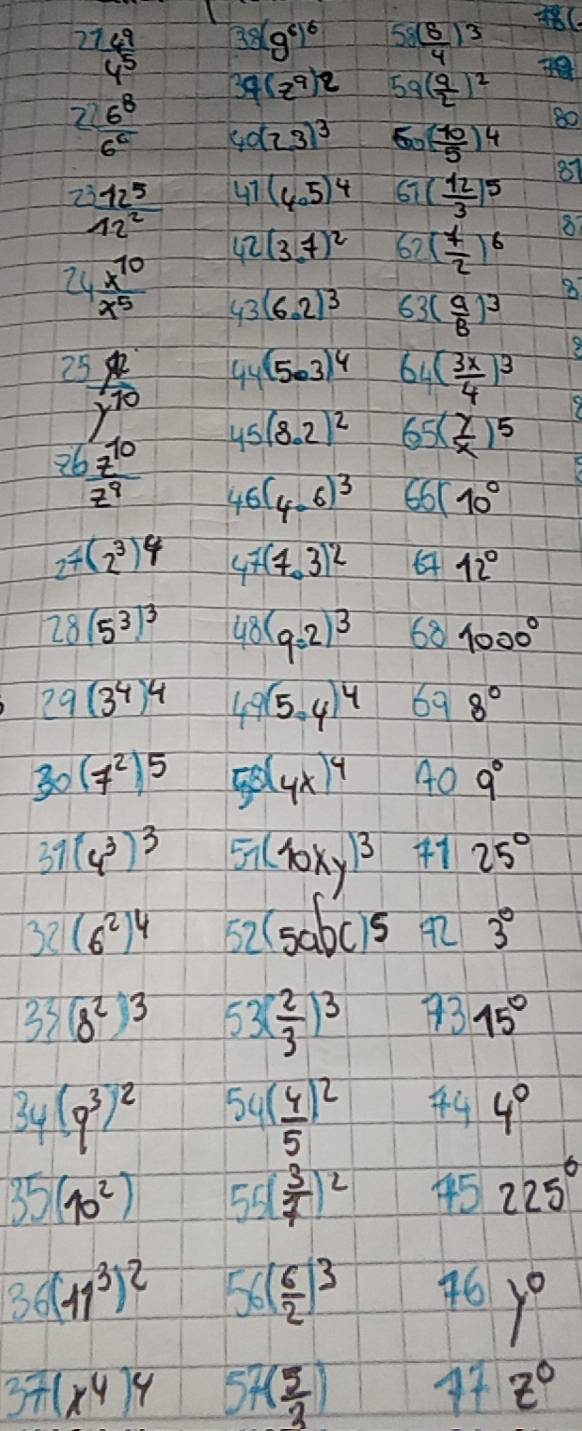 21 4⁹/4⁵
22 6⁸/6⁶
23 12⁵/12²
24 x¹⁰/x⁵
25 /y¹⁰
26 z¹⁰/z⁹
27 (2³)⁴
28 (5³)³
29 (3⁴)⁴
30 (7²)5
31 (4³)³
32 (6²)4
33 (8²)³
34 (9³)²
35 (10²)
36 (11³)²
37 (x⁴)4
38 (g⁶)⁶
39 (z⁹)2
40 (2.3)³
41 (4.5)4
42 (3.7)²
43 (6.2)³
44 (5.3)⁴
45 (8.2)²
46 (4.6)³
47 (7.3)²
48 (9.2)³
49 (5.4)⁴
50 (4x)⁴
51 (10xy)³
52 (5abc)5
53 (2/3)³
54 (4/5)²
55 (3/7)²
56 (6/2)³
57 (5/2)
58 (8/4)³
59 (9/2)²
60 (10/5)4
61 (12/3)5
62 (7/2)⁶
63 (a/B)³
64 (3x/4)³
65 (y/x)5
66 (10⁰
67 12⁰
68 1000⁰
69 8⁰
70 9⁰
71 25⁰
72 3⁰
73 15⁰
74 4⁰
75 225⁰
76 y⁰
77 z⁰
78 (
79
80
81